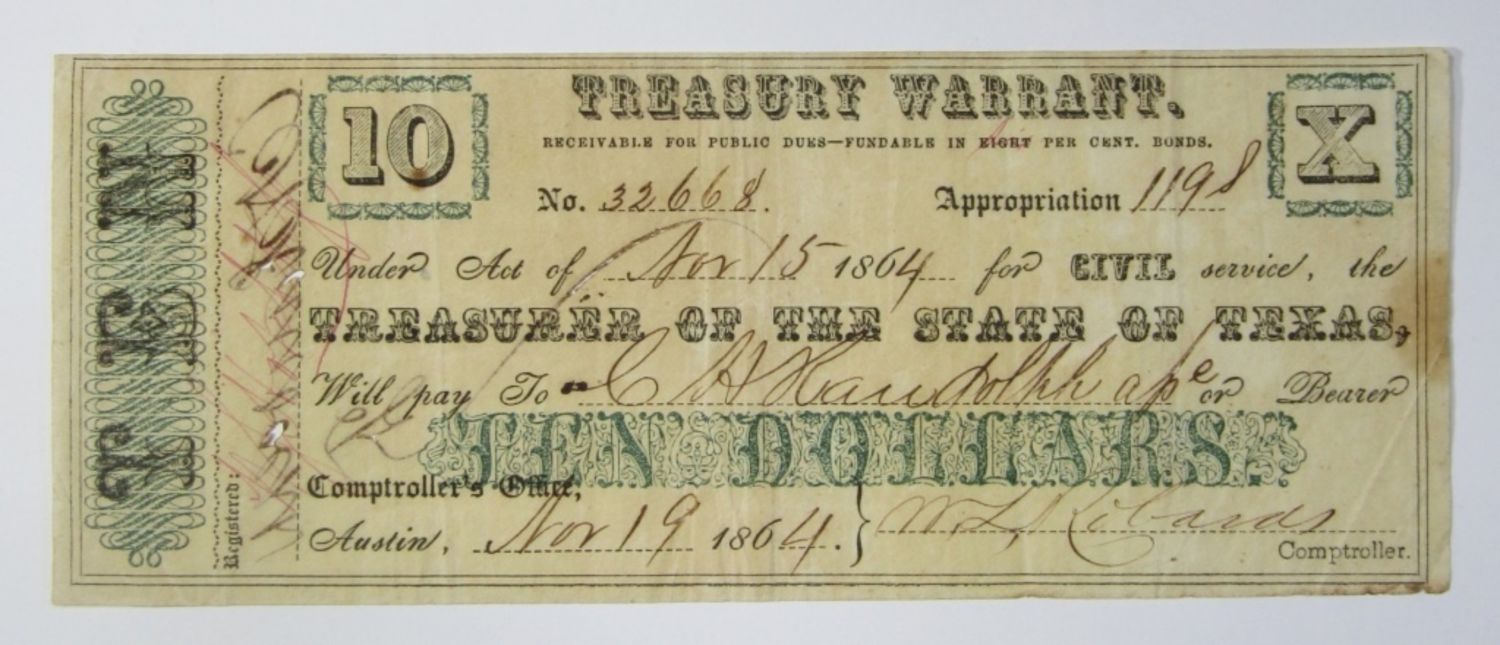 TEN
Registered:
10
TREASURY WARRANT.
X
RECEIVABLE FOR PUBLIC DUES—FUNDABLE IN EIGHT PER CENT. BONDS.
No. 32668. Appropriation 1198
Under Act of Nov 15 1864 for CIVIL service, the
TREASURER OF THE STATE OF TEXAS,
Will pay To C H Randolph or Bearer
TEN DOLLARS.
Comptroller's Office,
Austin, Nov 19 1864.
W L Robards
Comptroller.